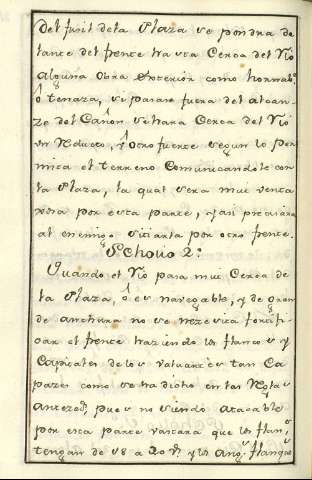 del fusil dela Plaza se pondra de
lante del frente hasta Cerca del Rio
alguna Obra Exterior como hornabe.
ô tenaza, si pasase fuera del alcan-
ze del Cañon se hara Cerca del Rio
un Reducto, ỳ otro fuerte segun lo per
mita el terreno Comunicandole con
la Plaza, la qual sera mui venta
xosa por esta parte, y asi precisara
al enemigo sitiarla por otro frente.
Scholio 2:
Quando el Rio pasa mui Cerca de
la Plaza, ô es navegable, y de gran
de anchura no se nezesita fortifi-
car el frente haziendo ls flancos y
Capitales de los valuartes tan Ca
pazes como se ha dicho en las Reglas
antezeds. pues no siendo atacable
por esta parte vastara que ls flan.
tengan de 18 a 20 Vs. y ls Angs. flanqs.